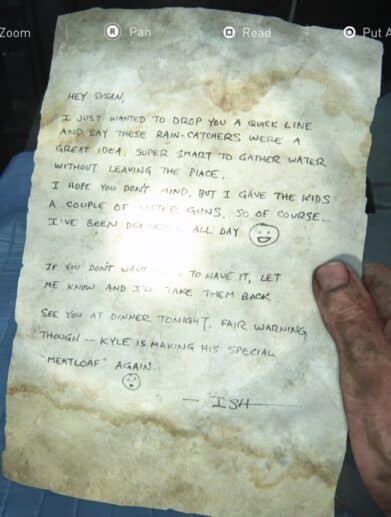 Zoom
R Pan
Read
Put A
HEY SUSAN,
I JUST WANTED TO DROP YOU A QUICK LINE
AND SAY THESE RAIN-CATCHERS WERE A
GREAT IDEA. SUPER SMART TO GATHER WATER
WITHOUT LEAVING THE PLACE.
I HOPE YOU DON'T MIND, BUT I GAVE THE KIDS
A COUPLE OF GUNS, SO OF COURSE...
I'VE BEEN ALL DAY
IF YOU DON'T WANT TO HAVE IT, LET
ME KNOW AND I'LL TAKE THEM BACK
SEE YOU AT DINNER TONIGHT. FAIR WARNING,
THOUGH -- KYLE IS MAKING HIS SPECIAL
"MEATLOAF" AGAIN.
— ISH